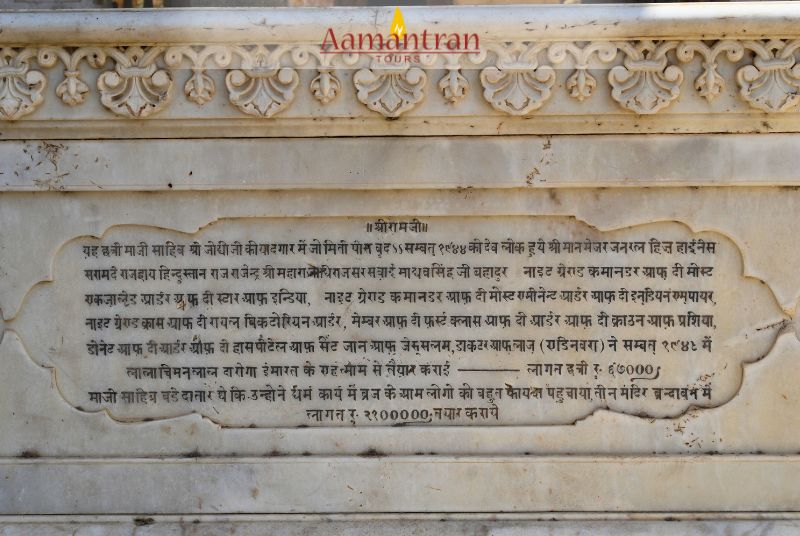 Aamantran
TOURS
॥श्रीरामजी॥
यह छत्री माजी साहिब श्री जोधीजी की यादगार में जो मिती पोस बुद ऽऽ सम्बत् १९४४ को देव लोक हुये श्री मानमेजर जनरल हिज़ हाईनेस
सरामदे राजहाय हिन्दुस्तान राज राजेन्द्र श्री महाराजाधिराज सर सवाई माधवसिंह जी बहादुर नाइट ग्रेराड कमानडर आफ़ दी मोस्ट
एकज़ाल्टेड आर्डर आफ़ दी स्टार आफ़ इन्डिया, नाइट ग्रेराड कमानडर आफ़ दी मोस्ट एमीनेन्ट आर्डर आफ़ दी इनडियन एमपायर,
नाइट ग्रेराड क्रास आफ़ दी रायल बिकटोरियन आर्डर, मेम्बर आफ़ दी फ़र्स्ट क्लास आफ़ दी आर्डर आफ़ दी क्राउन आफ़ प्रशिया,
डोनेट आफ़ दी आर्डर आफ़ दी हासपीटेल आफ़ सेंट जान आफ़ जेरूसलम, डाकटर आफ़ लाज़ (एडिनबरा) ने सम्बत् में
लाला चिमन लाल दारोगा इमारत के एहतमाम से तैयार कराई —— लागत छत्री रु. ६७०००,
माजी साहिब बड़े दातार थे कि उन्होने धर्म कार्य में ब्रज के आम लोगों को बहुत फायदा पहुचाया तीन मंदिर ब्रन्दाबन में
लागत रु. २१०००००, तयार कराये